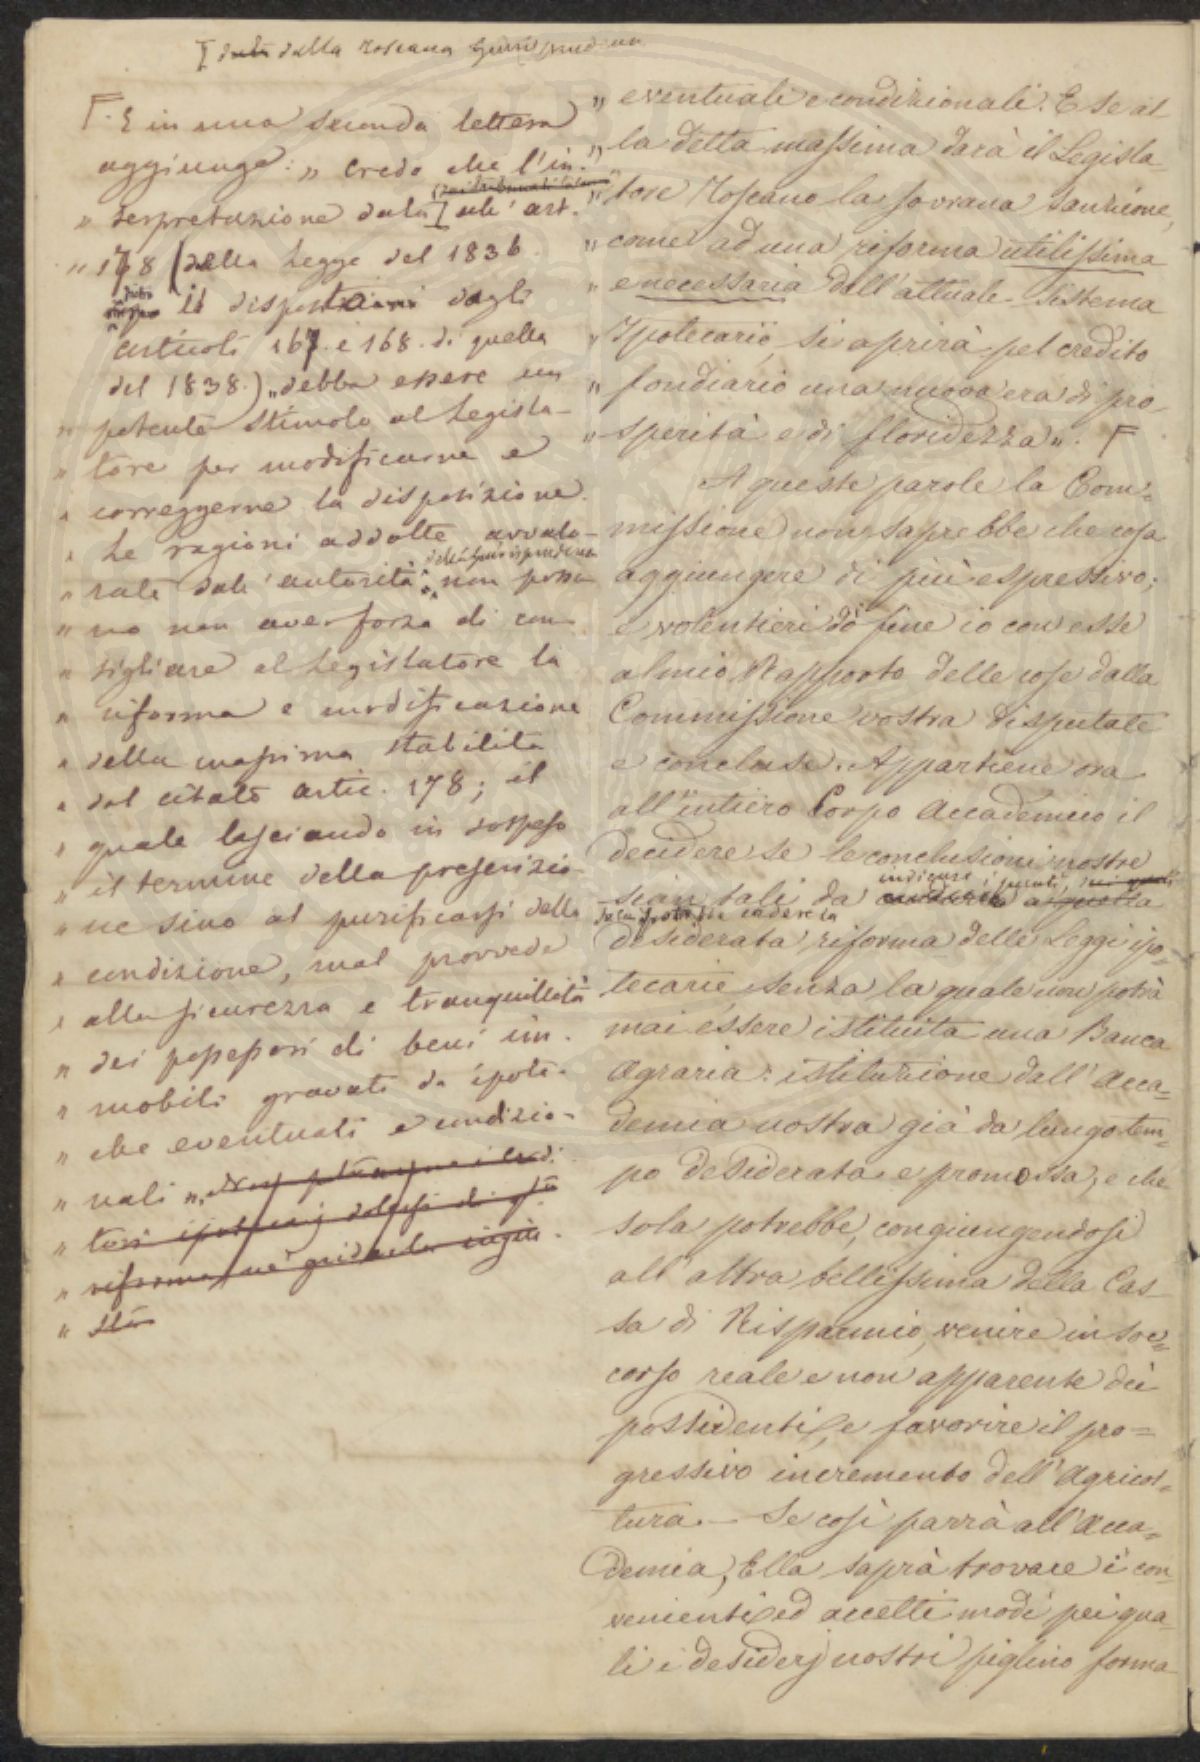 I dalla Toscana Giurisprudenza
Γ. E in una seconda lettera
aggiunge: „ Credo che l'in-
„ terpretazione data I all' art.
„ 178 (della Legge del 1836
le disposizioni degli
articoli 167. e 168. di quella
del 1838.) „ debba essere un
„ potente stimolo al Legisla-
„ tore per modificarne e
„ correggerne la disposizione.
„ Le ragioni addotte avvalo-
della giurisprudenza
„ rate dall' autorità non posso-
„ no non aver forza di con-
„ sigliare al Legislatore la
„ riforma e modificazione
„ della massima stabilita
„ dal citato artic. 178; il
„ quale lasciando in sospeso
„ il termine della prescrizio-
„ ne sino al purificarsi della
„ condizione, mal provvede
„ alla sicurezza e tranquillità
„ dei possessori di beni im-
„ mobili gravati da ipote-
„ che eventuali e condizio-
„ nali „.
„ riforma, nè
„ eventuali e condizionali. E se al-
„ la detta massima darà il Legisla-
„ tore Toscano la sovrana sanzione,
„ come ad una riforma utilissima
„ e necessaria dell'attuale sistema
„ Ipotecario, si aprirà pel credito
„ fondiario una nuova era di pro-
„ sperità e di floridezza „. Γ
A queste parole la Com-
missione non saprebbe che cosa
aggiungere di più espressivo;
e volentieri dò fine io con esse
al mio Rapporto delle cose dalla
Commissione vostra disputate
e concluse. Appartiene ora
all'intiero Corpo Accademico il
decidere se le conclusioni nostre
indicare i punti,
sian tali da a questa
desiderata riforma delle Leggi ipo-
tecarie, senza la quale non potrà
mai essere istituita una Banca
Agraria: istituzione dall' Acca=
demia nostra già da lungo tem=
po desiderata e promossa, e che
sola potrebbe, congiungendosi
all' altra bellissima della Cas-
sa di Risparmio, venire in soc=
corso reale e non apparente dei
possidenti, e favorire il pro=
gressivo incremento dell' Agricol=
tura. — Se così parrà all' Acca=
demia, Ella saprà trovare i con-
venienti ed accetti modi pei qua-
li i desiderj nostri piglino forma